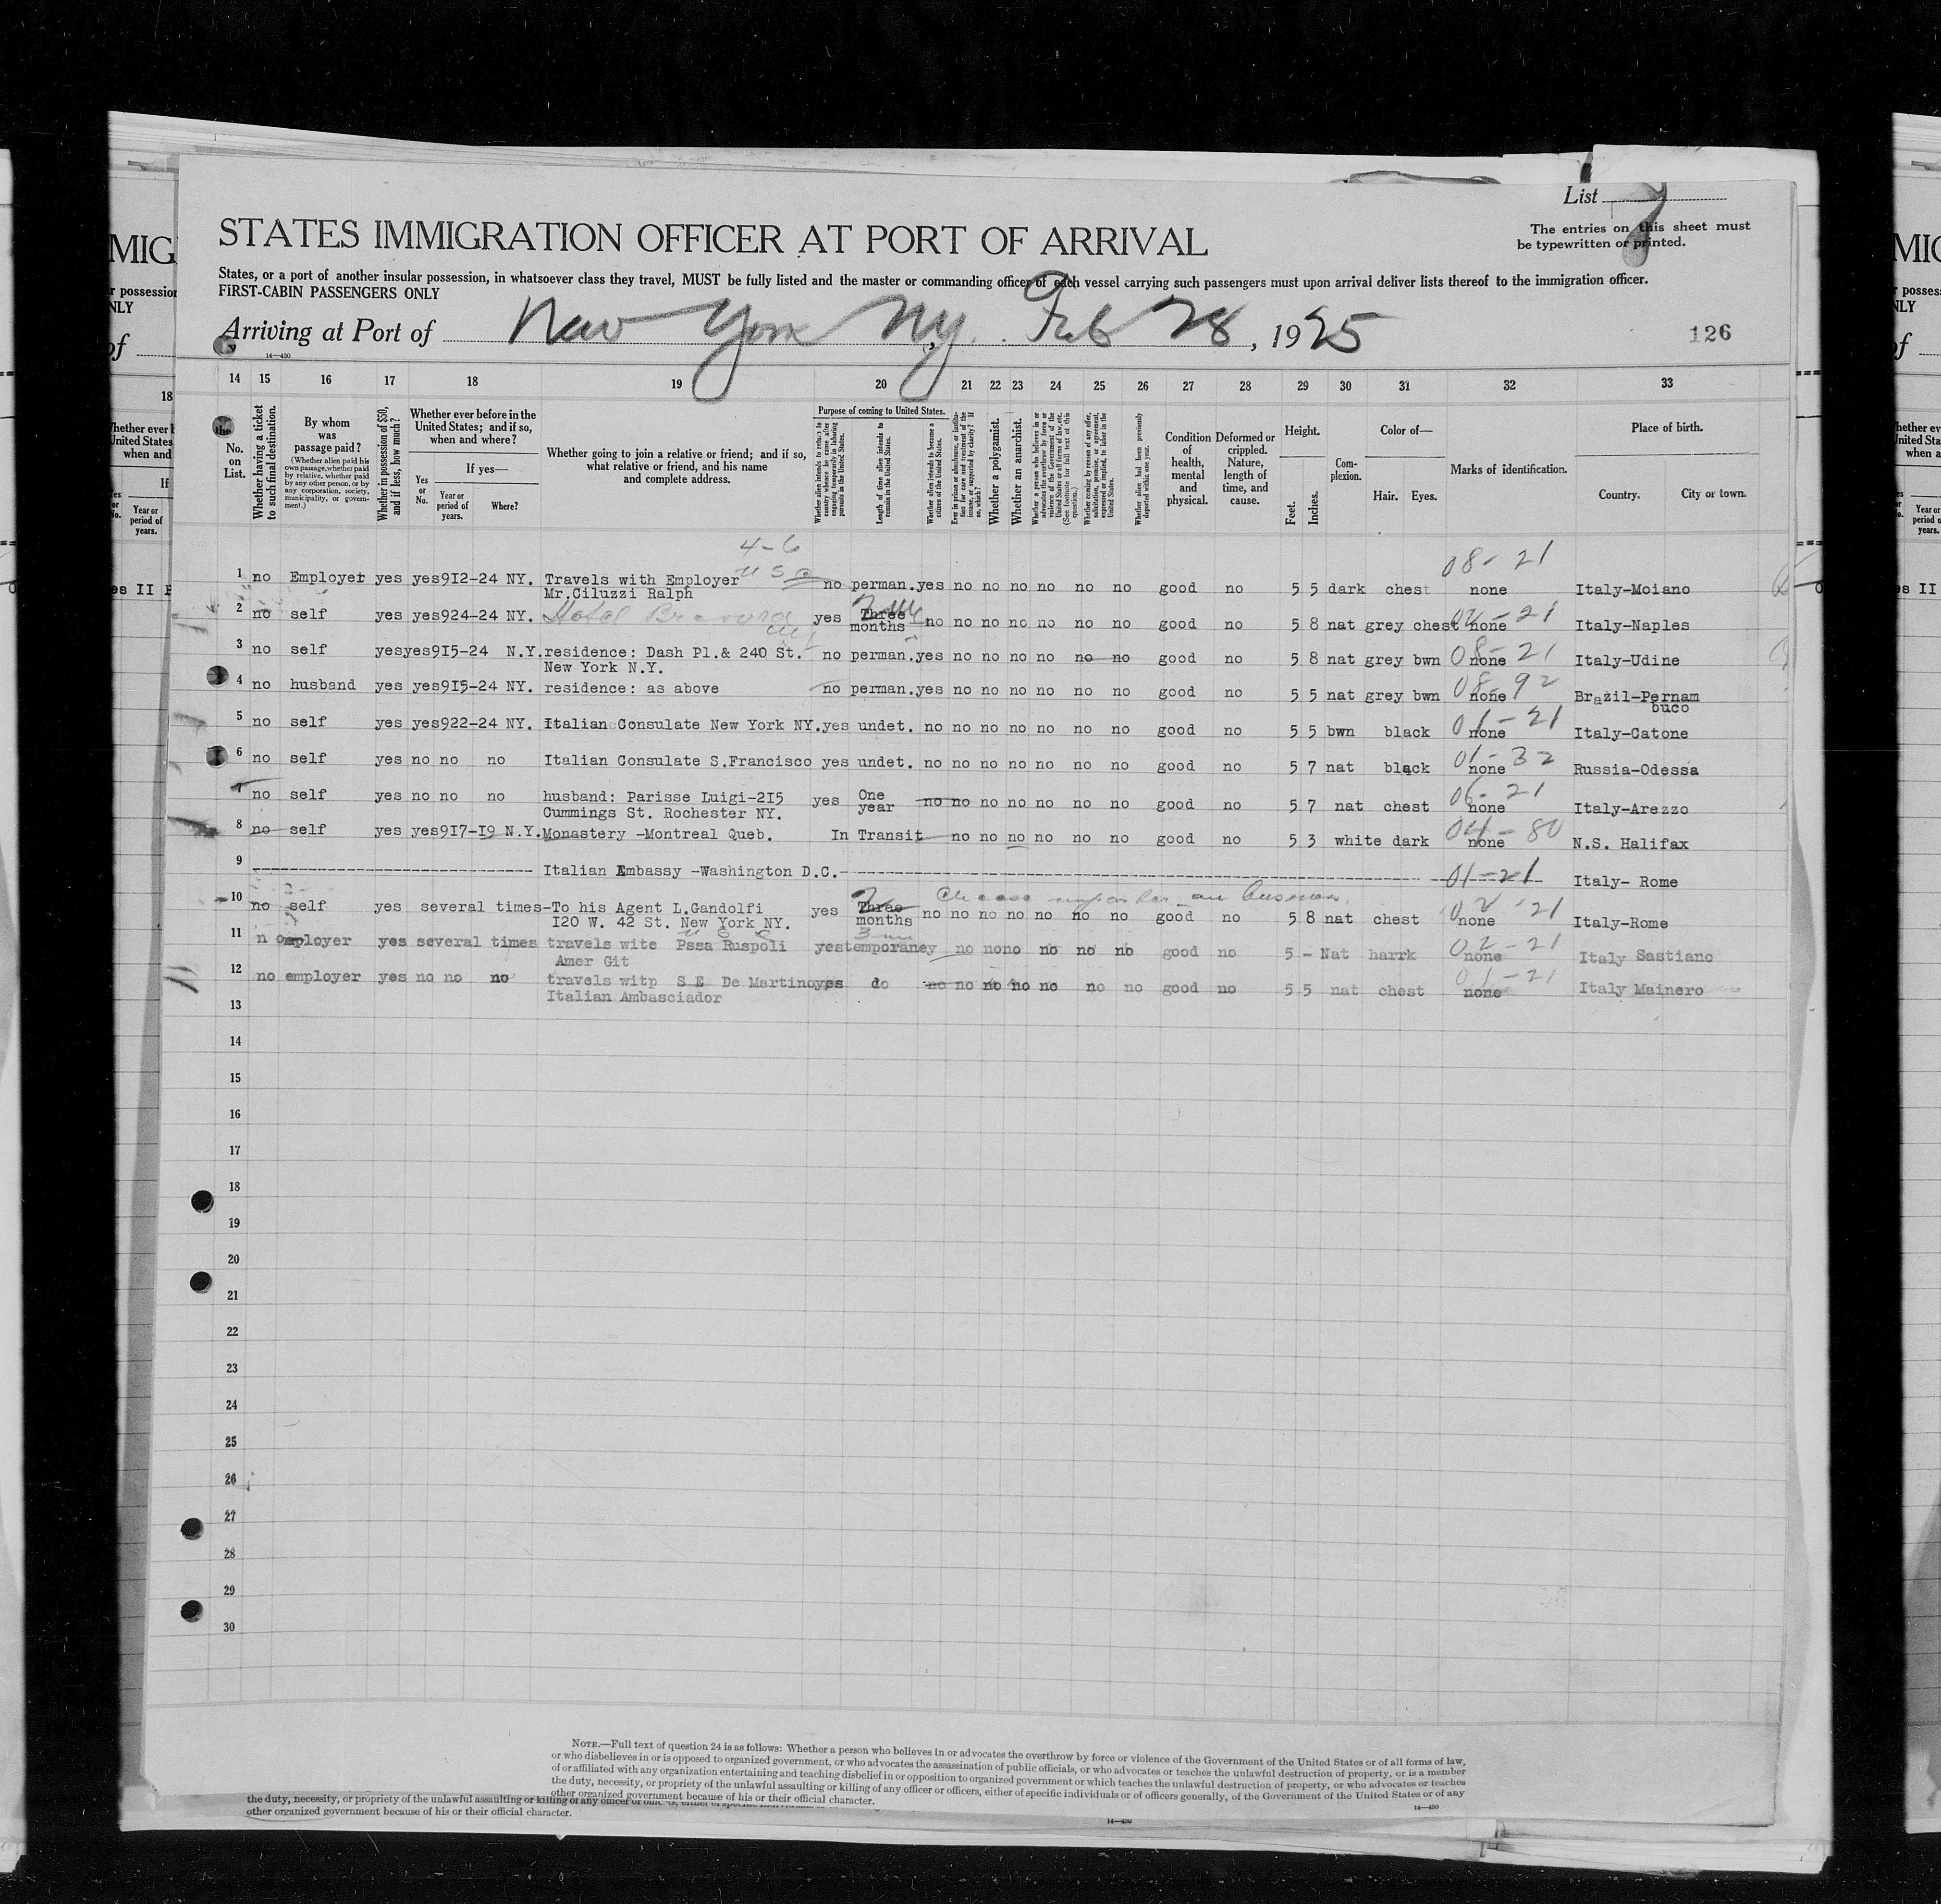 List
The entries on this sheet must
be typewritten or printed.
STATES IMMIGRATION OFFICER AT PORT OF ARRIVAL
States, or a port of another insular possession, in whatsoever class they travel, MUST be fully listed and the master or commanding officer of each vessel carrying such passengers must upon arrival deliver lists thereof to the immigration officer.
FIRST-CABIN PASSENGERS ONLY
Arriving at Port of New York NY. Feb 28, 1925
126
14—430
14 15 16 17 18 19 20 21 22 23 24 25 26 27 28 29 30 31 32 33
No. on List.
Whether having a ticket to such final destination.
By whom was passage paid?
(Whether alien paid his own passage, whether paid by relative, whether paid by any other person, or by any corporation, society, municipality, or government.)
Whether in possession of $50, and if less, how much?
Whether ever before in the United States; and if so, when and where?
Yes or No.
If yes—
Year or period of years.
Where?
Whether going to join a relative or friend; and if so, what relative or friend, and his name and complete address.
Purpose of coming to United States.
Length of time alien intends to remain in the United States.
Whether alien intends to become a citizen of the United States.
Whether a polygamist.
Whether an anarchist.
Condition of health, mental and physical.
Deformed or crippled. Nature, length of time, and cause.
Height.
Feet. Inches.
Complexion.
Color of—
Hair. Eyes.
Marks of identification.
Place of birth.
Country. City or town.
4-6
08-21
1 no Employer yes yes912-24 NY. Travels with Employer USA no perman. yes no no no no no no good no 5 5 dark chest none Italy-Moiano
Mr.Ciluzzi Ralph
2 no self yes yes924-24 NY. Hotel yes Three months no no no no no no no good no 5 8 nat grey chest none Italy-Naples
3 no self yesyes915-24 N.Y. residence: Dash Pl.& 240 St. no perman. yes no no no no no no good no 5 8 nat grey bwn 08-21 none Italy-Udine
New York N.Y.
4 no husband yes yes915-24 NY. residence: as above no perman. yes no no no no no no good no 5 5 nat grey bwn 08-92 none Brazil-Pernam
buco
5 no self yes yes922-24 NY. Italian Consulate New York NY. yes undet. no no no no no no no good no 5 5 bwn black 01-21 none Italy-Catone
6 no self yes no no no Italian Consulate S.Francisco yes undet. no no no no no no no good no 5 7 nat black 01-32 none Russia-Odessa
7 no self yes no no no husband: Parisse Luigi-215 yes One year no no no no no no no good no 5 7 nat chest 06-21 none Italy-Arezzo
Cummings St. Rochester NY.
8 no self yes yes917-19 N.Y. Monastery -Montreal Queb. In Transit no no no no no no good no 5 3 white dark 04-80 none N.S. Halifax
9 Italian Embassy -Washington D.C. 01-21 Italy- Rome
10 no self yes several times-To his Agent L.Gandolfi yes Three months no no no no no no no good no 5 8 nat chest 02-21 none Italy-Rome
120 W. 42 St. New York NY.
11 n o employer yes several times travels wite Pssa Ruspoli yestemporaney no nono no no no good no 5 - Nat harrk 02-21 none Italy Sastiano
Amer Git
12 no employer yes no no no travels witp S E De Martinoyes do no no no no no no no good no 5 5 nat chest 01-21 none Italy Mainero
Italian Ambasciador
13
14
15
16
17
18
19
20
21
22
23
24
25
26
27
28
29
30
NOTE.—Full text of question 24 is as follows: Whether a person who believes in or advocates the overthrow by force or violence of the Government of the United States or of all forms of law,
or who disbelieves in or is opposed to organized government, or who advocates the assassination of public officials, or who advocates or teaches the unlawful destruction of property, or is a member
of or affiliated with any organization entertaining and teaching disbelief in or opposition to organized government or which teaches the unlawful destruction of property, or who advocates or teaches
the duty, necessity, or propriety of the unlawful assaulting or killing of any officer or officers, either of specific individuals or of officers generally, of the Government of the United States or of any
other organized government because of his or their official character.
14—430
the duty, necessity, or propriety of the unlawful assaulting or killing of any officer
other organized government because of his or their official character.
14—430